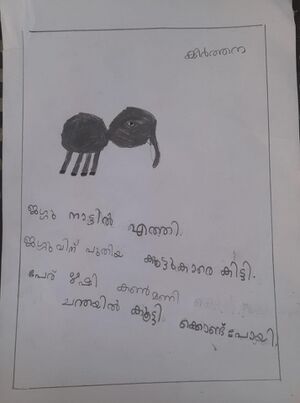 കീർത്തന
ജഗ്ഗു നാട്ടിൽ എത്തി.
ജഗ്ഗുവിന് പുതിയ കൂട്ടുകാരെ കിട്ടി.
പേര് ഋഷി കൺമണി
ചന്തയിൽ കൂട്ടി കൊണ്ട്പോയി.